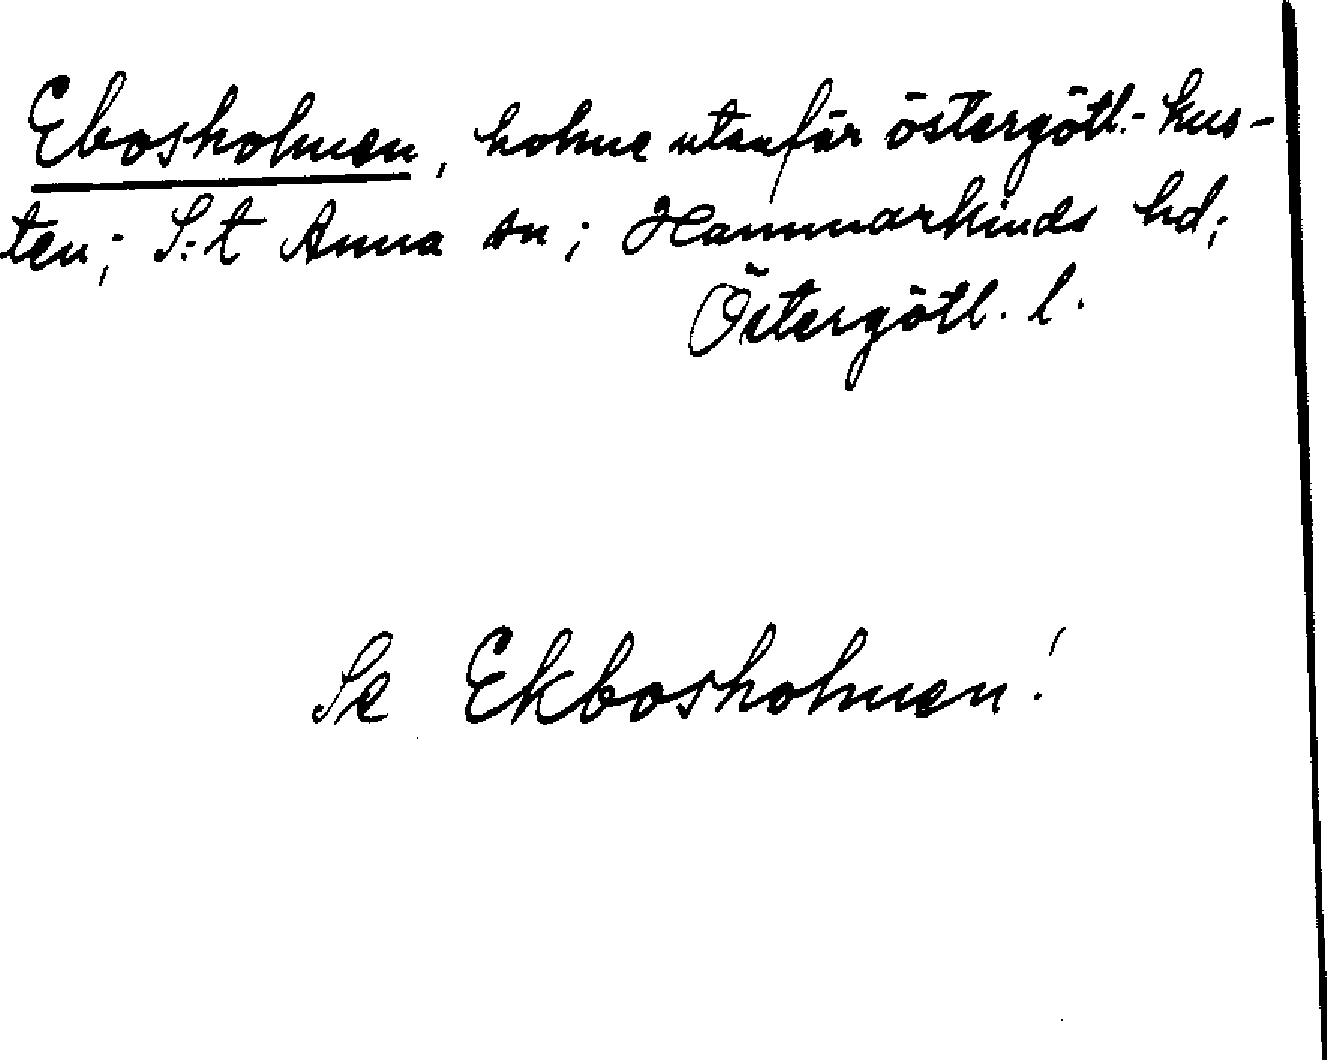 Ebosholmen, holme utanför östergötl.- kus-
ten; S:t Anna sn; Hammarkinds hd;
Östergötl. l.
Se Ekbosholmen!